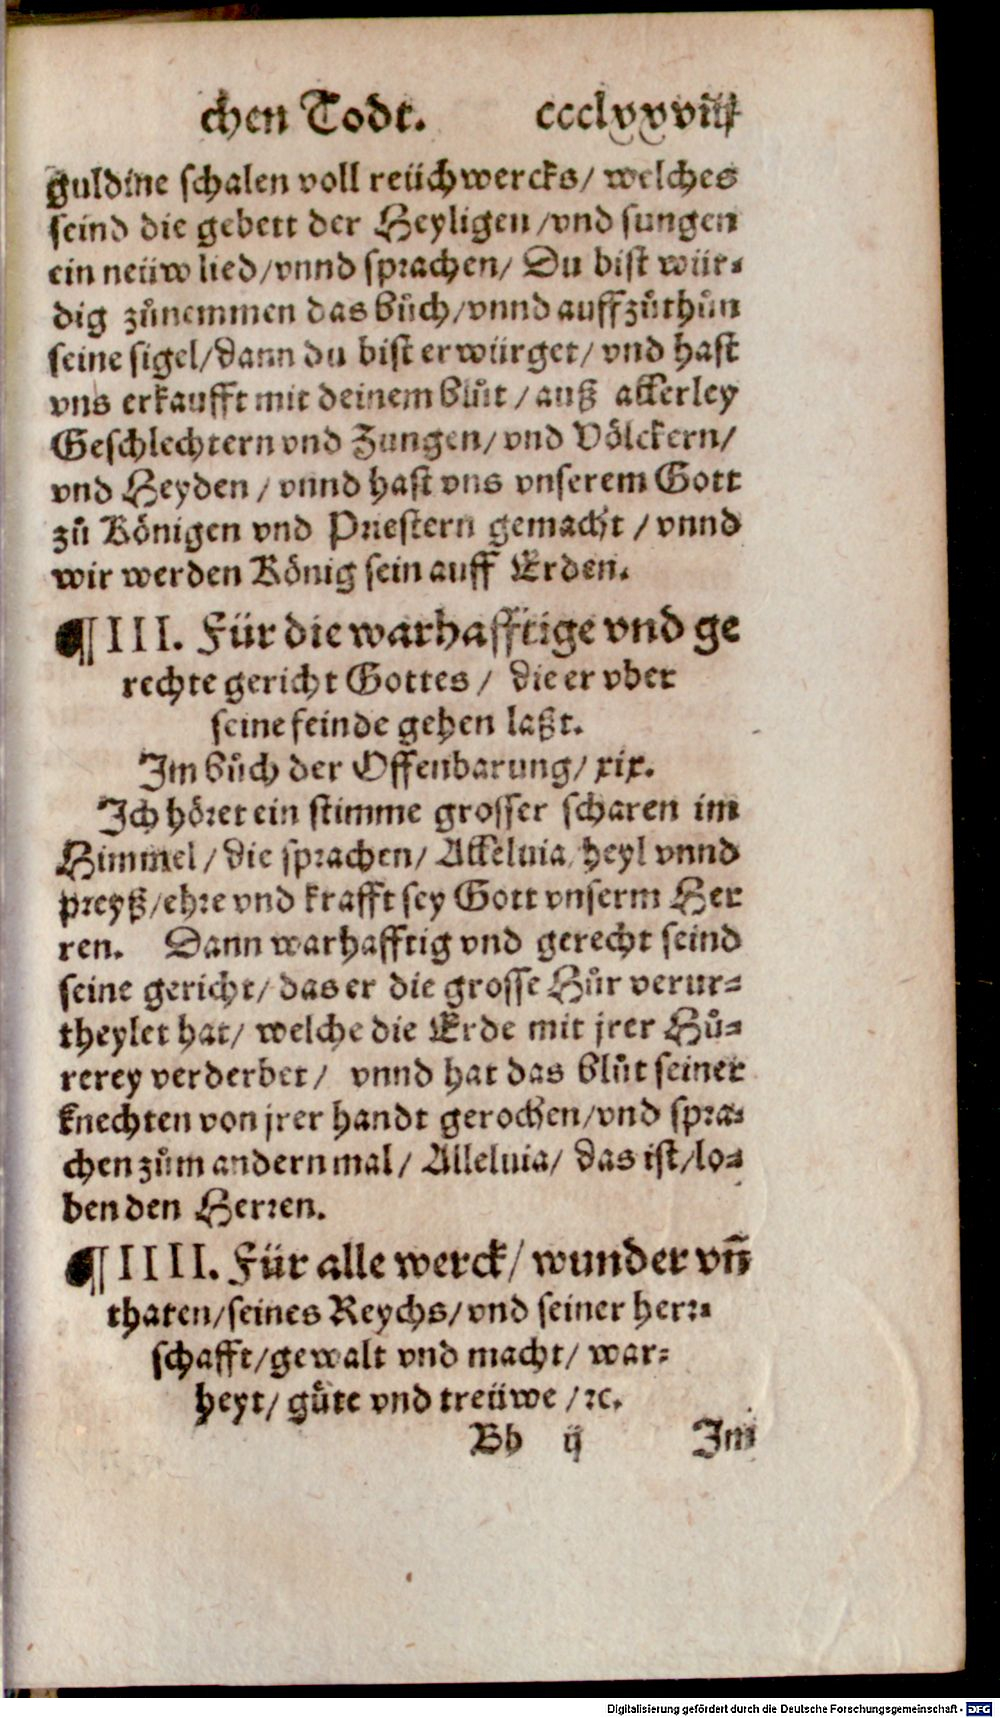 chen Todt. ccclxxviij
guldine schalen voll reüchwercks/ welches
seind die gebett der Heyligen /vnd sungen
ein neüw lied/vnnd sprachen/ Du bist wür-
dig zůnemmen das Bůch/vnnd auffzůthůn
seine sigel/dann du bist erwürget/ vnd hast
vns erkaufft mit deinem Blůt / auß allerley
Geschlechtern vnd Zungen/ vnd Völckern/
vnd Heyden / vnnd hast vns vnserem Gott
zů Königen vnd Priestern gemacht / vnnd
wir werden König sein auff Erden.
¶ III. Für die warhafftige vnd ge
rechte gericht Gottes / die er vber
seine feinde gehen laßt.
Im Bůch der Offenbarung/ xix.
Ich höret ein stimme grosser scharen im
Himmel / die sprachen/ Alleluia/ heyl vnnd
preyß/ehre vnd krafft sey Gott vnserm Her
ren. Dann warhafftig vnd gerecht seind
seine gericht/ das er die grosse Hůr verur-
theylet hat/ welche die Erde mit jrer Hů-
rerey verderbet / vnnd hat das Blůt seiner
knechten von jrer handt gerochen/vnd spra-
chen zům andern mal/ Alleluia/ das ist/lo-
ben den Herren.
¶ IIII. Für alle werck/ wunder vñ
thaten/seines Reychs/vnd seiner herr-
schafft/gewalt vnd macht/ war-
heyt/ gůte vnd treüwe /ꝛc.
Bb ij Im
Digitalisierung gefördert durch die Deutsche Forschungsgemeinschaft - DFG